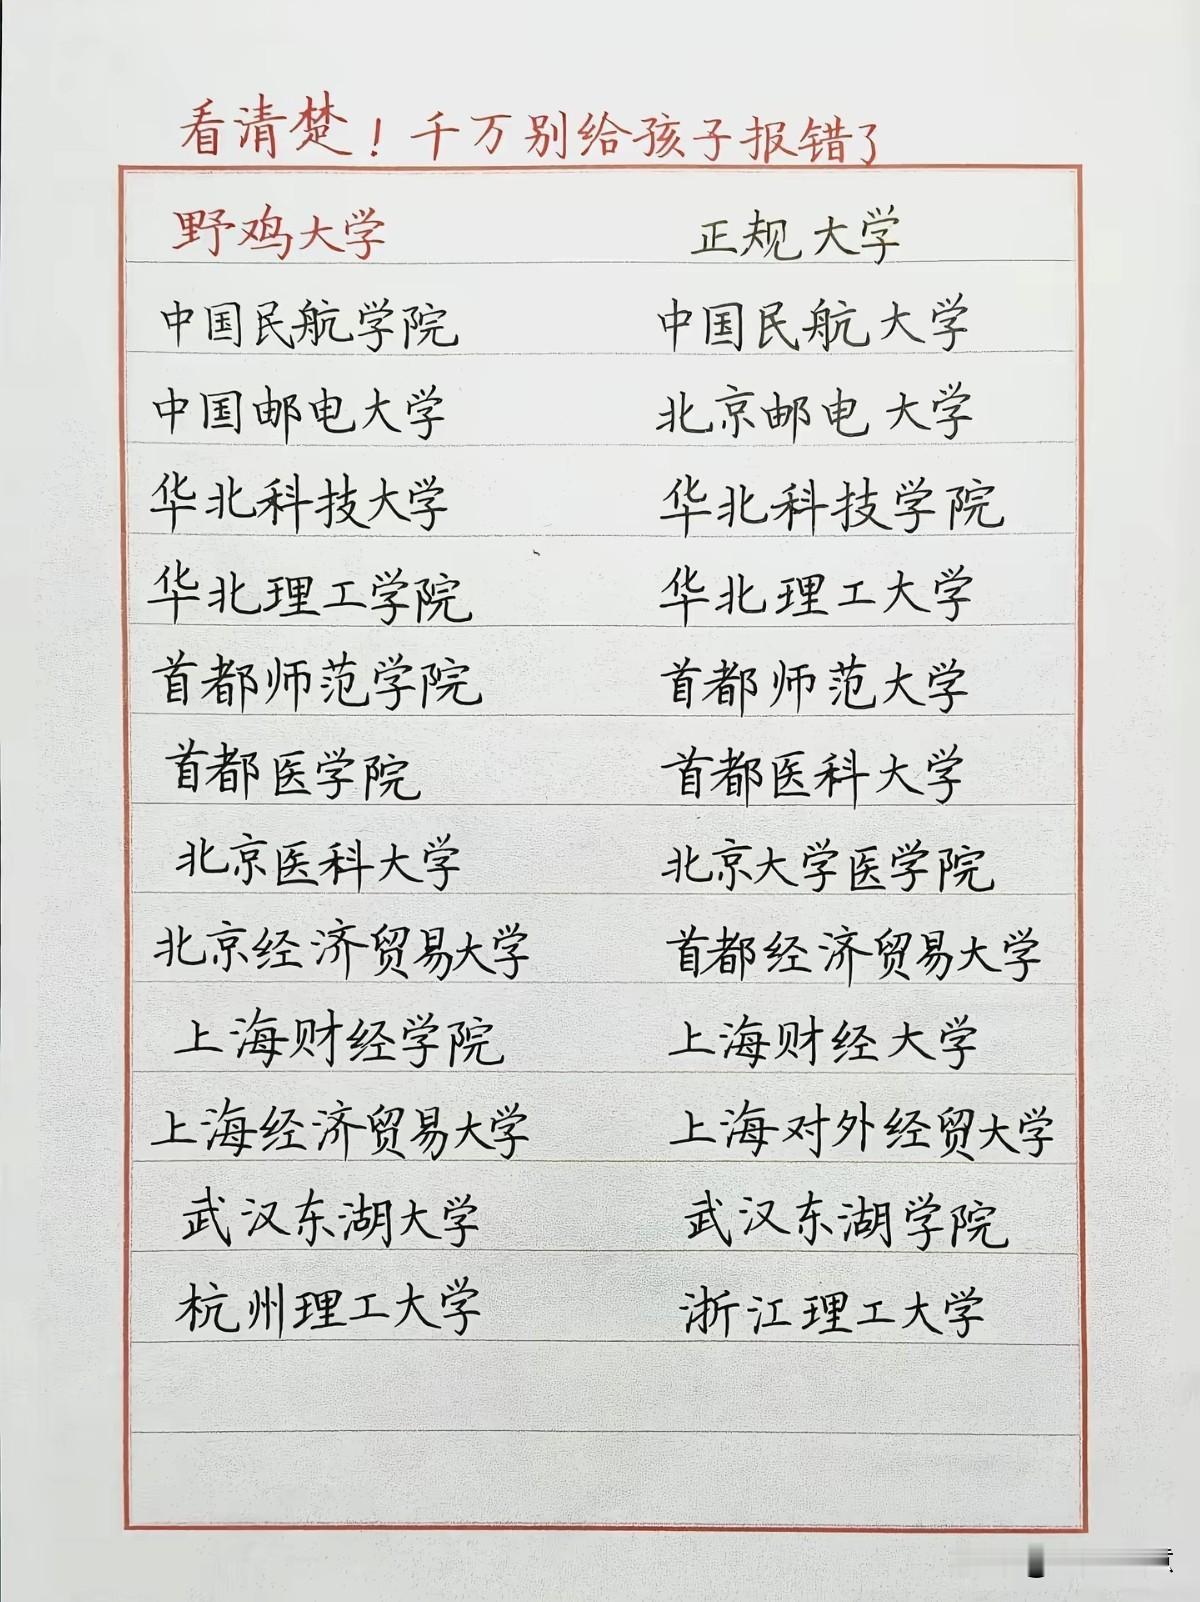 看清楚！千万别给孩子报错了
野鸡大学 正规大学
中国民航学院 中国民航大学
中国邮电大学 北京邮电大学
华北科技大学 华北科技学院
华北理工学院 华北理工大学
首都师范学院 首都师范大学
首都医学院 首都医科大学
北京医科大学 北京大学医学院
北京经济贸易大学 首都经济贸易大学
上海财经学院 上海财经大学
上海经济贸易大学 上海对外经贸大学
武汉东湖大学 武汉东湖学院
杭州理工大学 浙江理工大学